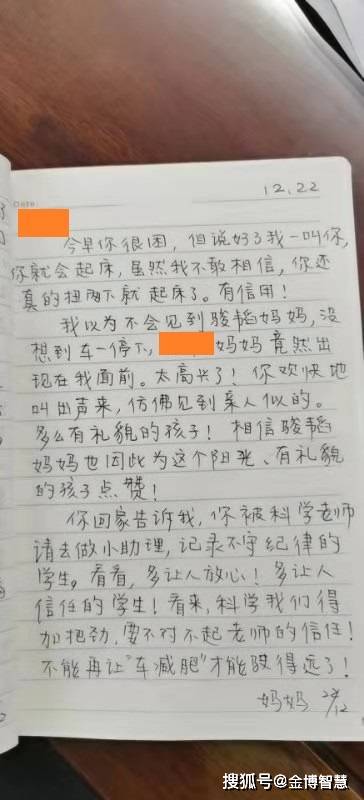 Date:
12.22
今早你很困，但说好了我一叫你，
你就会起床，虽然我不敢相信，你还
真的扭两下就起床了。有信用！
我以为不会见到骏韬妈妈，没
想到车一停下，妈妈竟然出
现在我面前。太高兴了！你欢快地
叫出声来，仿佛见到亲人似的。
多么有礼貌的孩子！相信骏韬
妈妈也因此为这个阳光、有礼貌
的孩子点赞！
你回家告诉我，你被科学老师
请去做小助理，记录不守纪律的
学生。看看，多让人放心！多让人
信任的学生！看来，科学我们得
加把劲，要不对不起老师的信任！
不能再让“车减肥”才能驶得远了！
妈妈
搜狐号@金博智慧